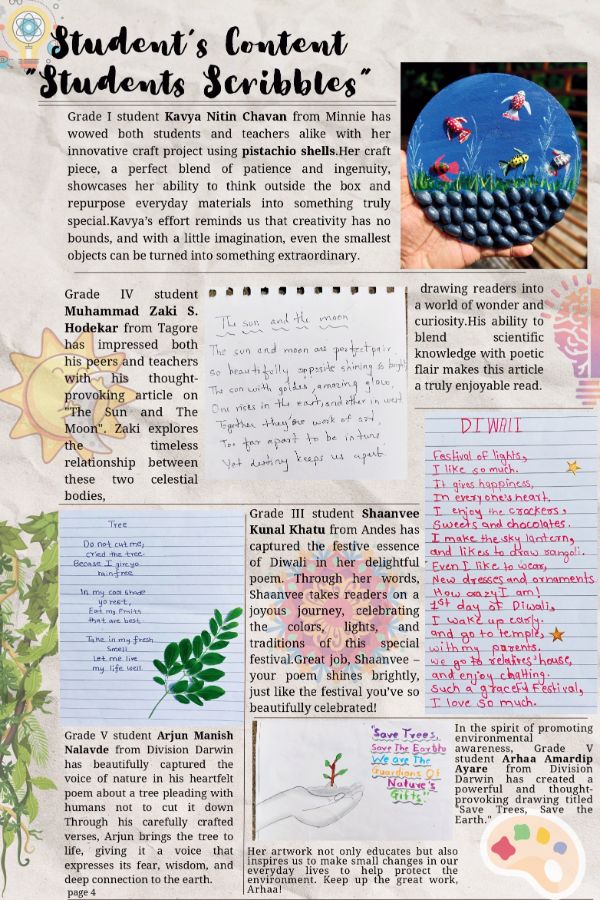 Student's Content
"Students Scribbles"
Grade I student Kavya Nitin Chavan from Minnie has
wowed both students and teachers alike with her
innovative craft project using pistachio shells.Her craft
piece, a perfect blend of patience and ingenuity,
showcases her ability to think outside the box and
repurpose everyday materials into something truly
special.Kavya's effort reminds us that creativity has no
bounds, and with a little imagination, even the smallest
objects can be turned into something extraordinary.
Grade IV student
Muhammad Zaki S.
Hodekar from Tagore
has impressed both
his peers and teachers
with his thought-
provoking article on
"The Sun and The
Moon". Zaki explores
the timeless
relationship between
these two celestial
bodies,
The sun and the moon
The sun and moon are perfect pair
so beautifully opposite shining so bright
The sun with goldes, amazing glow,
One rises in the east, and other in west
Together they're work of sort,
Too far apart to be in tune
Yet destiny keeps us apart.
drawing readers into
a world of wonder and
curiosity.His ability to
blend scientific
knowledge with poetic
flair makes this article
a truly enjoyable read.
DIWALI
Festival of lights,
I like so much.
It gives happiness,
In everyone's heart.
I enjoy the crackers,
Sweets and chocolates.
I make the sky lantern,
and likes to draw rangoli.
Even I like to wear,
New dresses and ornaments
How crazy I am!
1st day of Diwali,
I wake up early.
and go to temple,
with my parents.
we go to relatives' house,
and enjoy chatting.
Such a graceful Festival,
I love so much.
Tree
Do not cut me,
cried the tree.
Because I give yo
rain free
In my cool shade
yo rest,
Eat my fruits
that are best.
Take in my fresh
Smell
Let me live
my life well.
Grade III student Shaanvee
Kunal Khatu from Andes has
captured the festive essence
of Diwali in her delightful
poem. Through her words,
Shaanvee takes readers on a
joyous journey, celebrating
the colors, lights, and
traditions of this special
festival.Great job, Shaanvee –
your poem shines brightly,
just like the festival you've so
beautifully celebrated!
Grade V student Arjun Manish
Nalavde from Division Darwin
has beautifully captured the
voice of nature in his heartfelt
poem about a tree pleading with
humans not to cut it down
Through his carefully crafted
verses, Arjun brings the tree to
life, giving it a voice that
expresses its fear, wisdom, and
deep connection to the earth.
"Save Trees,
Save The Earth
We are The
Guardians Of
Nature's
Gifts"
In the spirit of promoting
environmental
awareness, Grade V
student Arhaa Amardip
Ayare from Division
Darwin has created a
powerful and thought-
provoking drawing titled
"Save Trees, Save the
Earth."
Her artwork not only educates but also
inspires us to make small changes in our
everyday lives to help protect the
environment. Keep up the great work,
Arhaa!
page 4